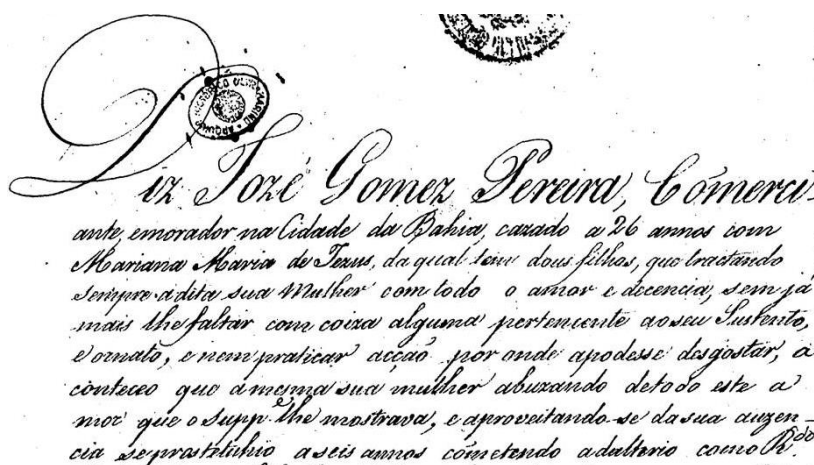 Diz Jozé Gomez Pereira, Comerci-
ante, emorador na Cidade da Bahia, cazado a 26 annos com
Mariana Maria de Jezus, da qual tem dous filhos, que tractando
sempre adita sua Mulher com todo o amor e decencia, sem já
mais lhe faltar com coiza alguma pertencente aoseu Sustento,
e ornato, e nem praticar acção por onde apodesse desgostar, a
conteceo que amesma sua mulher abuzando detodo este a
mor que o Supp.e lhe mostrava, e aproveitando-se dasua auzen-
cia seprostetuhio aseis annos cometendo adulterio como R.do
ARQUIVO HISTORICO ULTRAMARINO